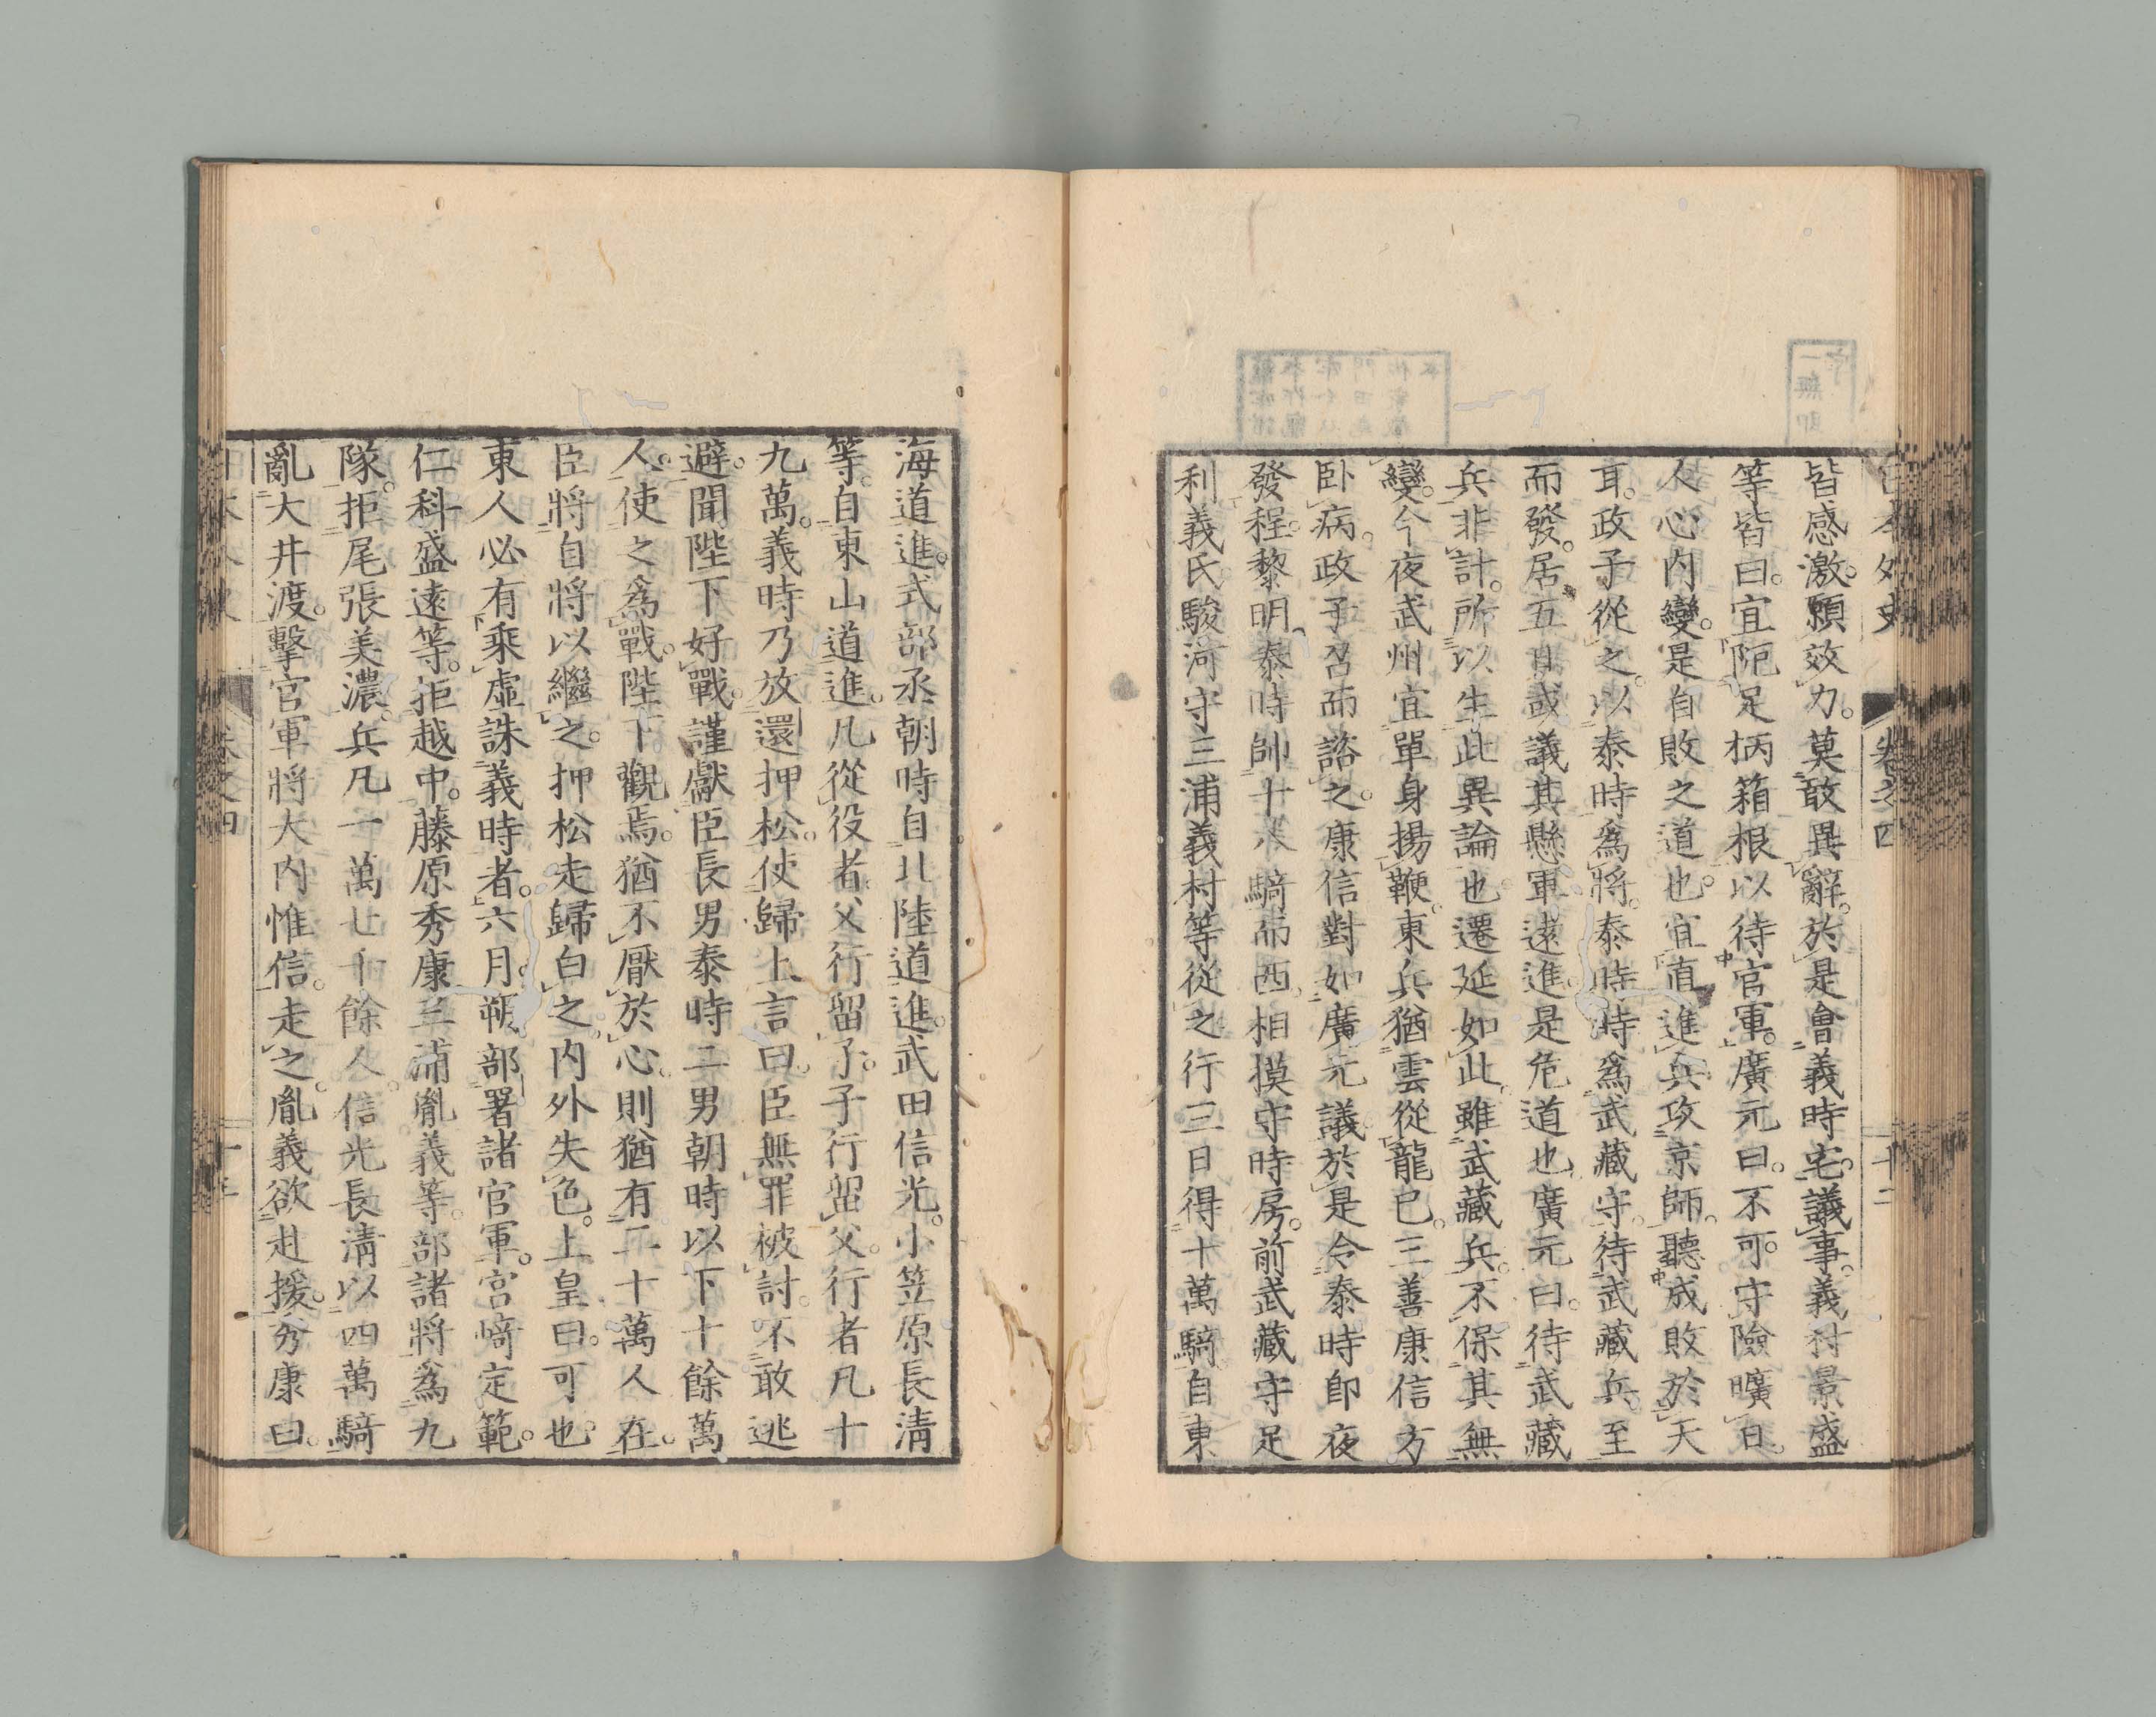 日本外史 卷之四 十二
皆感激。願效力。莫敢異辭。於是會義時宅。議事。義村景盛
等皆曰。宜阨足柄箱根以待官軍。廣元曰。不可。守險曠日。
人心內變。是自敗之道也。宜直進兵攻京師。聽成敗於天
耳。政子從之。以泰時爲將。泰時時爲武藏守。待武藏兵。至
而發。居五日。或議其懸軍遠進是危道也。廣元曰。待武藏
兵非計。所以生此異論也。遷延如此。雖武藏兵。不保其無
變。今夜武州宜單身揚鞭。東兵猶雲從龍已。三善康信方
臥病。政子召而諮之。康信對如廣元議。於是令泰時即夜
發程。黎明。泰時帥十八騎而西。相摸守時房。前武藏守足
利義氏駿河守三浦義村等從之。行三日得十萬騎。自東
海道進。式部丞朝時自北陸道進。武田信光。小笠原長淸
等。自東山道進。凡從役者。父行留子。子行留父。行者凡十
九萬。義時乃放還押松。使歸上言曰。臣無罪被討。不敢逃
避。聞陛下好戰。謹獻臣長男泰時二男朝時以下十餘萬
人。使之爲戰。陛下觀焉。猶不厭於心。則猶有二十萬人在。
臣將自將以繼之。押松走歸白之。內外失色。上皇曰。可也。
東人必有乘虛誅義時者。六月朔。部署諸官軍。宮﨑定範。
仁科盛遠等。拒越中。藤原秀康三浦胤義等。部諸將爲九
隊。拒尾張美濃。兵凡一萬七千餘人。信光長淸以四萬騎
亂大井渡。擊官軍將大內惟信。走之。胤義欲赴援。秀康曰。
卷之四